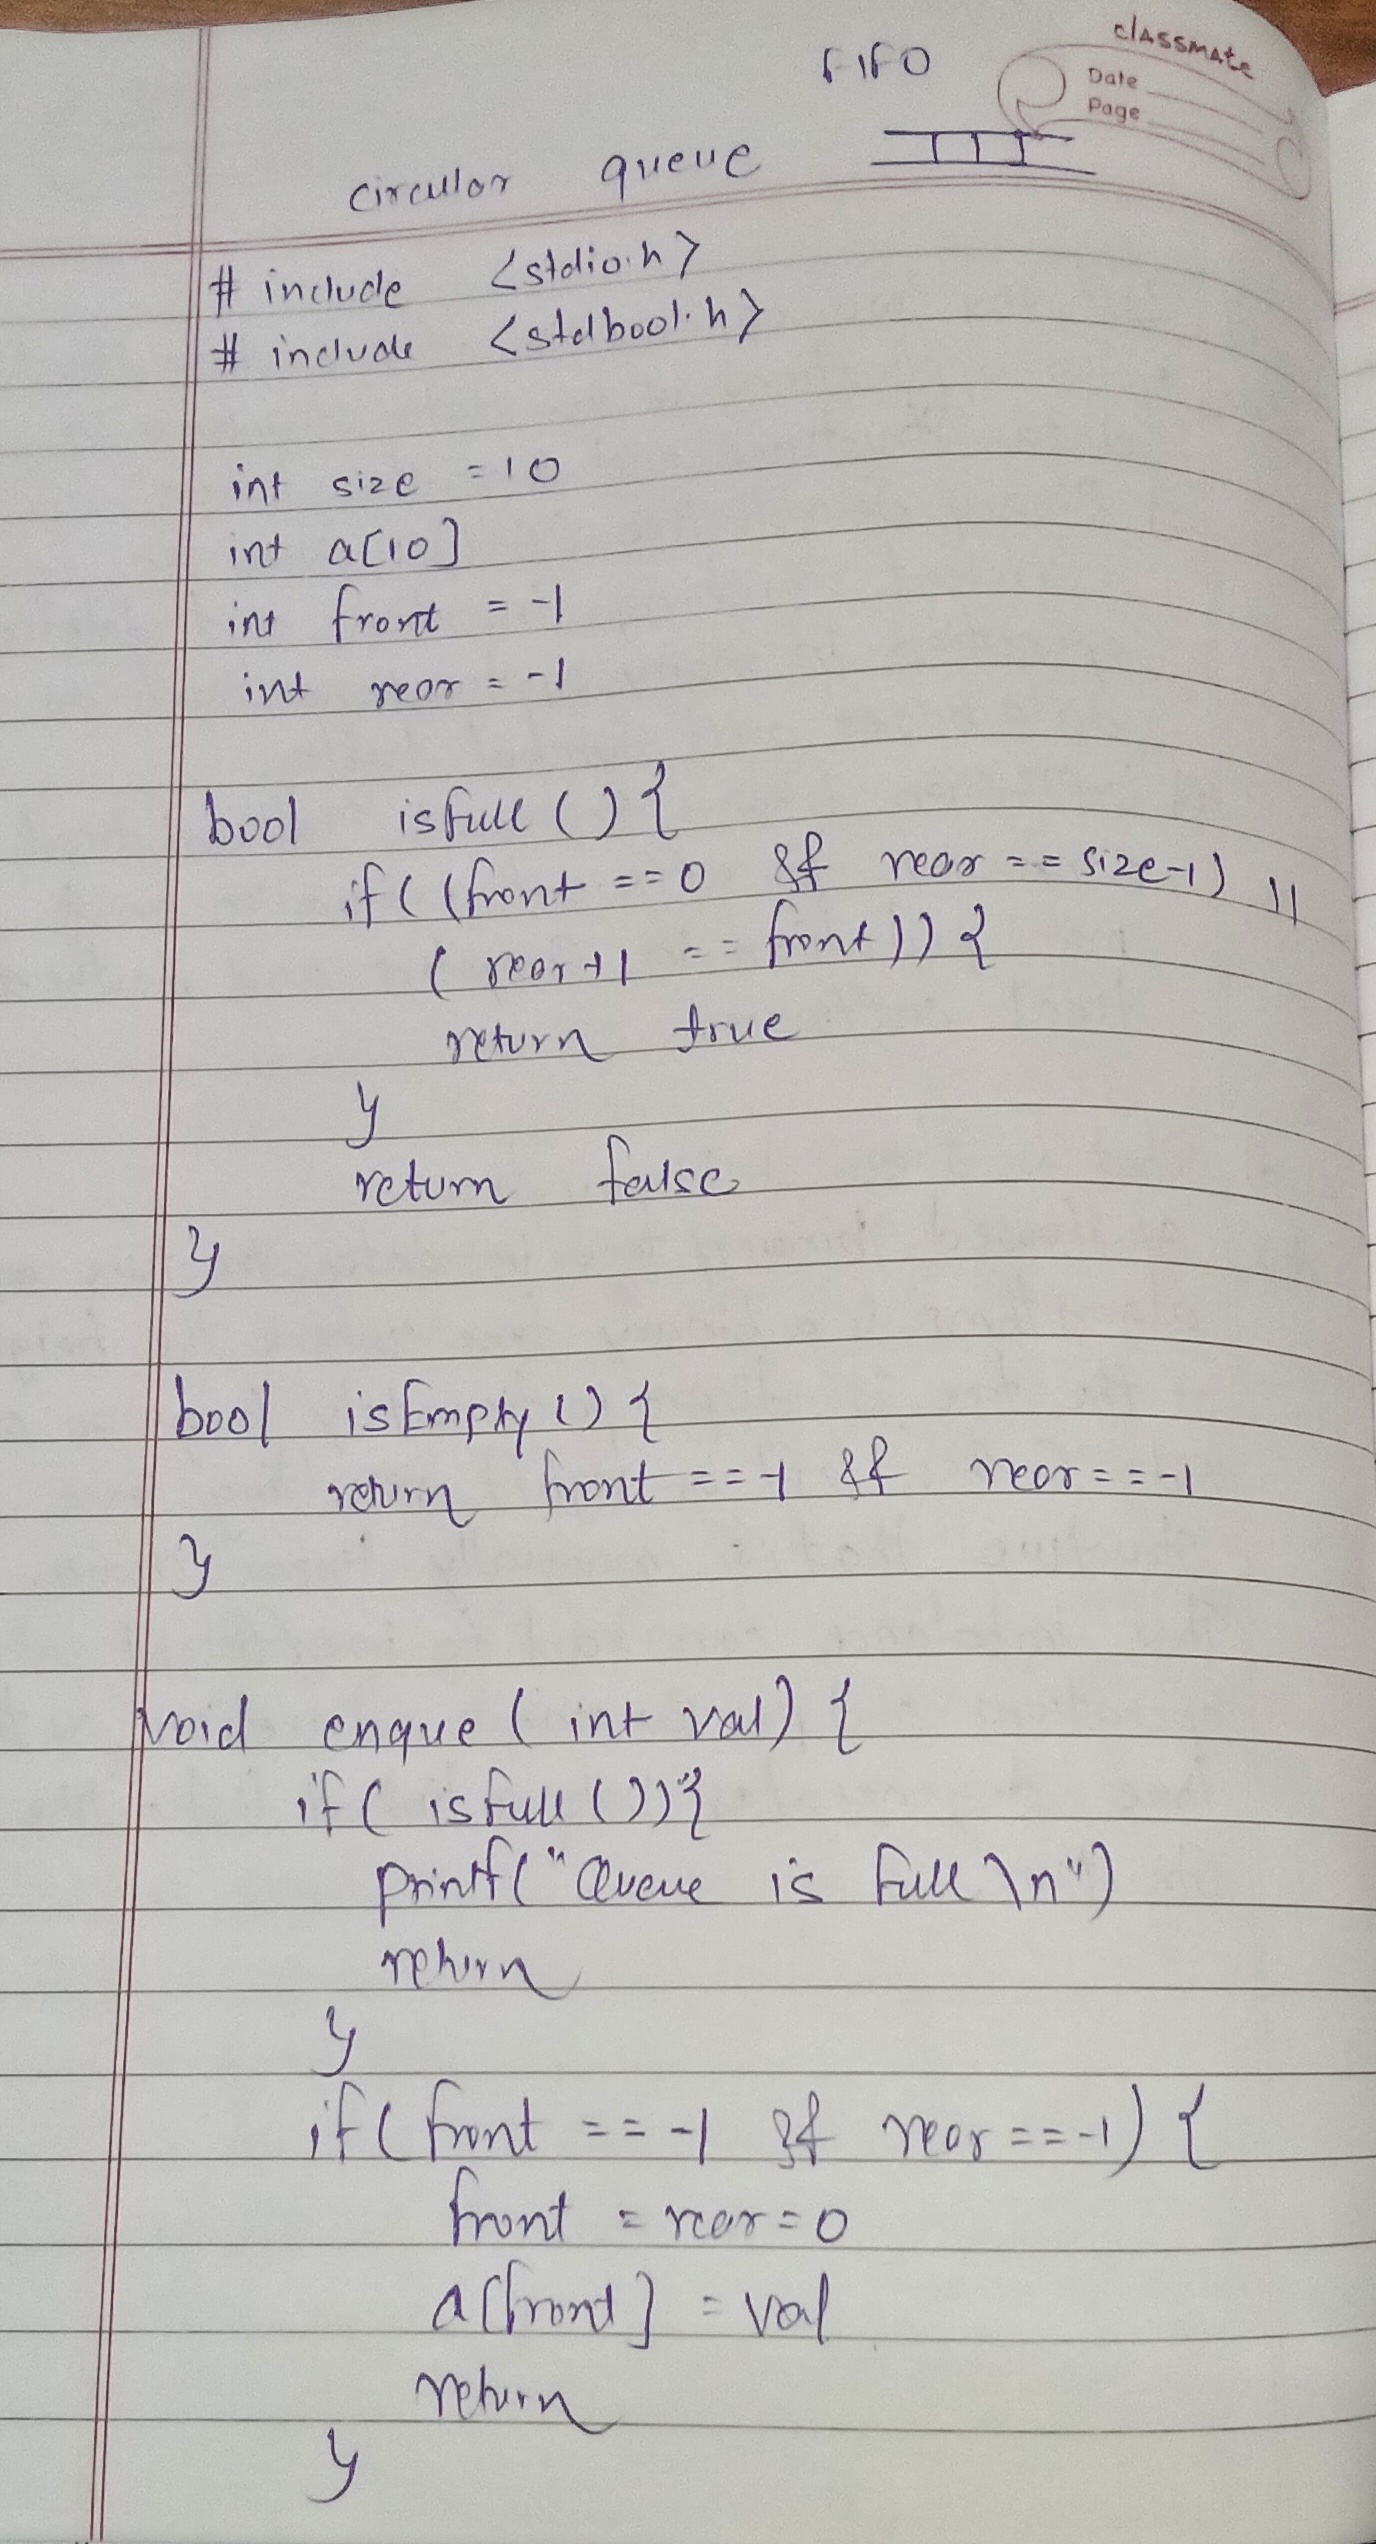 FIFO
classmate
Date
Page
circular queue
# include <stdio.h>
# include <stdbool.h>
int size = 10
int a[10]
int front = -1
int rear = -1
bool isfull () {
if ( (front == 0 && rear == size-1) ||
( rear+1 == front)) {
return true
}
return false
}
bool isEmpty () {
return front == -1 && rear == -1
}
void enque ( int val) {
if ( isfull ()) {
printf("Queue is full \n")
return
}
if ( front == -1 && rear == -1) {
front = rear = 0
a[front] = val
return
}